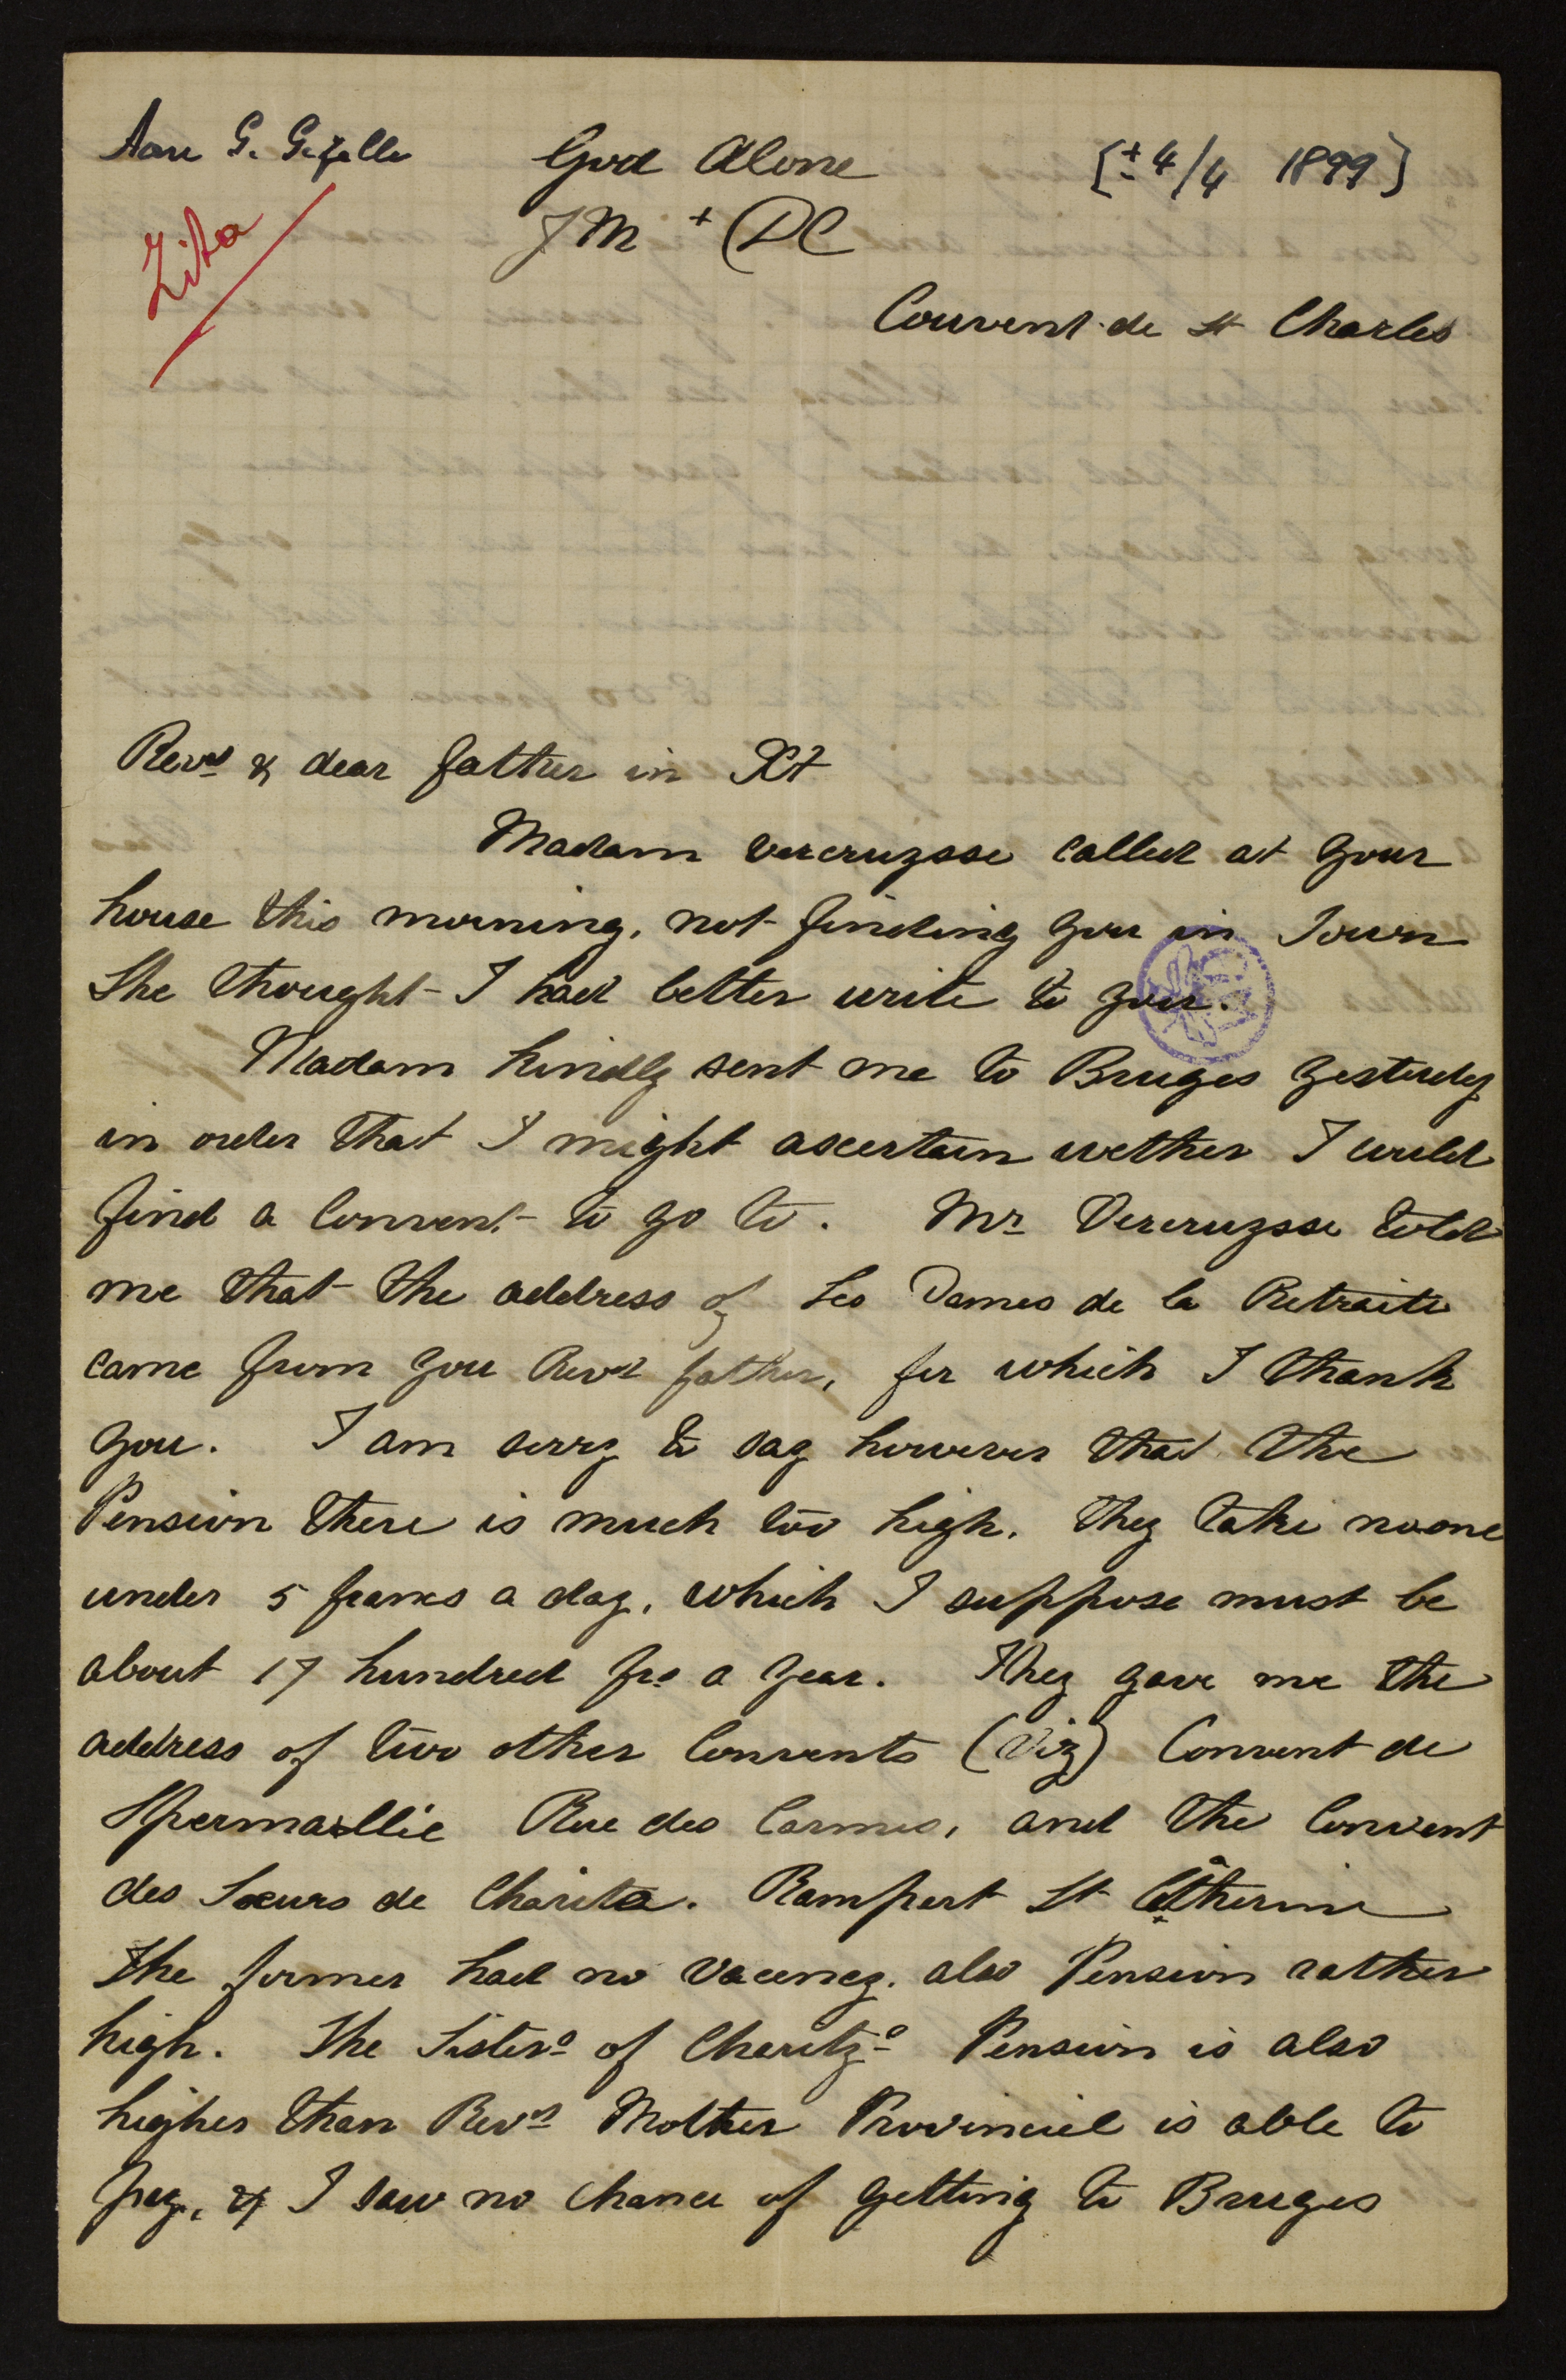 Aan G. Gezelle
God Alone
[± 4/4 1899]
Zita
J M + DC
Couvent de St Charles
Revd & dear father in Xt
Madam vercruysse called at your
house this morning, not finding you in Town
She thought I had better write to you.
Madam kindly sent me to Bruges yesterdy
in order that I might ascertain wether I could
find a Convent to go to. Mr Vercruysse told
me that the address of Les Dames de la Retraite
came from you Revd father, for which I thank
you. I am sorry to say however that the
Pension there is much too high. they take noone
under 5 francs a day, which I suppose must be
about 17 hundred frs a year. They gave me the
address of two other Convents (Viz) Convent de
Spermallie Rue des Carmes, and the Convent
des Soeurs de Charité. Rampart St Catherine
The former had no vacency. also Pension rather
high. The Sisters of Charitys Pension is also
higher than Revd Mother Provinciel is able to
pay, & I saw no chance of getting to Bruges